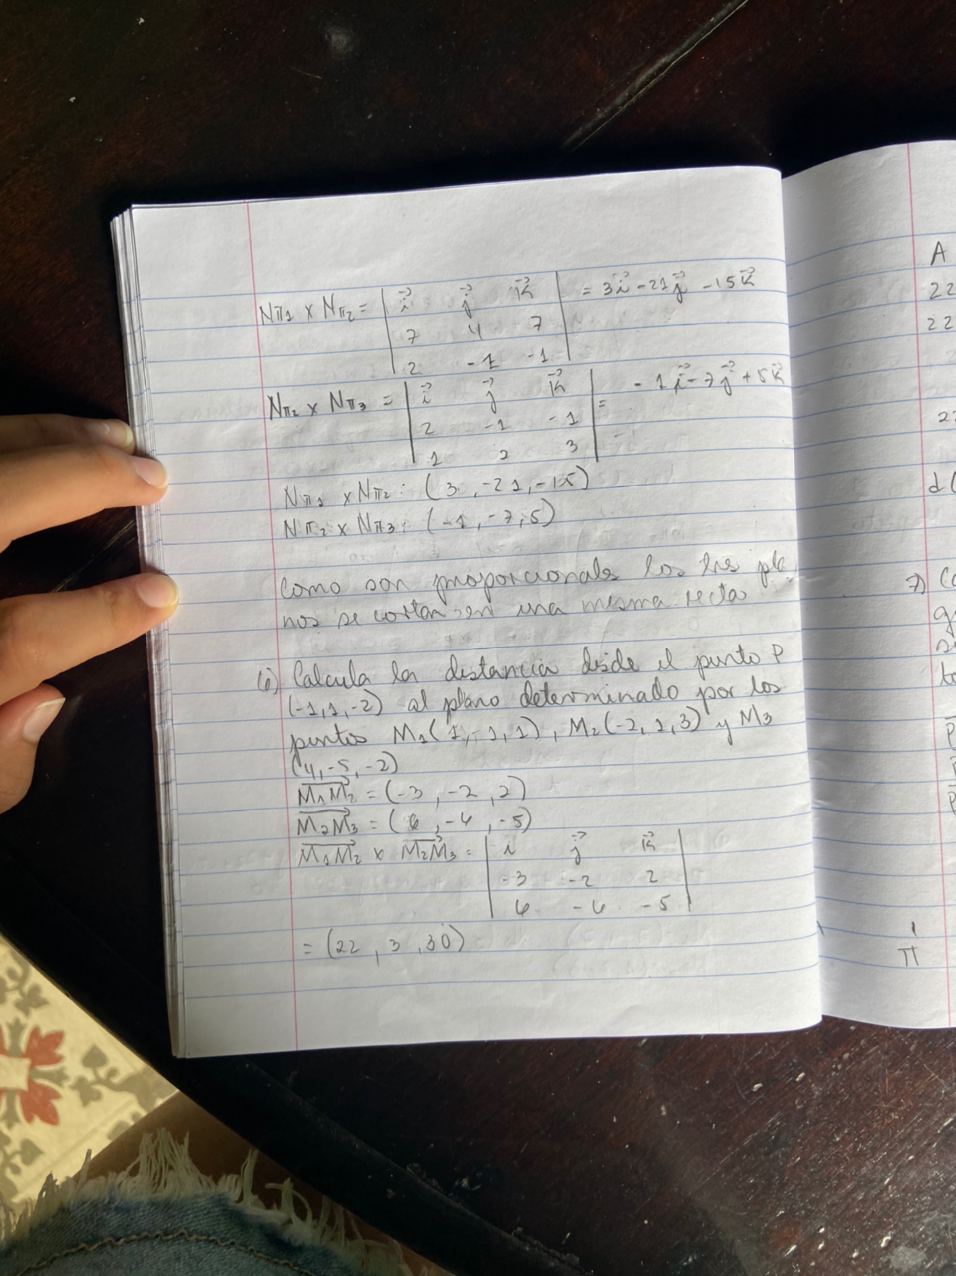 Nπ1 x Nπ2 = | i⃗ j⃗ k⃗ | = 3i⃗ - 21j⃗ - 15k⃗
7 4 7
2 -1 -1
Nπ2 x Nπ3 = | i⃗ j⃗ k⃗ | = - 1i⃗ - 7j⃗ + 5k⃗
2 -1 -1
1 2 3
Nπ1 x Nπ2: (3, -21, -15)
Nπ2 x Nπ3: (-1, -7, 5)
Como son proporcionales los tres pla
nos se cortan en una misma recta
Calcula la distancia desde el punto P
(-1,1,-2) al plano determinado por los
puntos M1(1,-1,1), M2(-2,1,3) y M3
(4,-5,-2)
M1M2 = (-3, -2, 2)
M2M3 = (6, -6, -5)
M1M2 x M2M3 = | i⃗ j⃗ k⃗ |
-3 -2 2
6 -6 -5
= (22, 3, 30)
A
22
22
22
d(
7) Ca
π